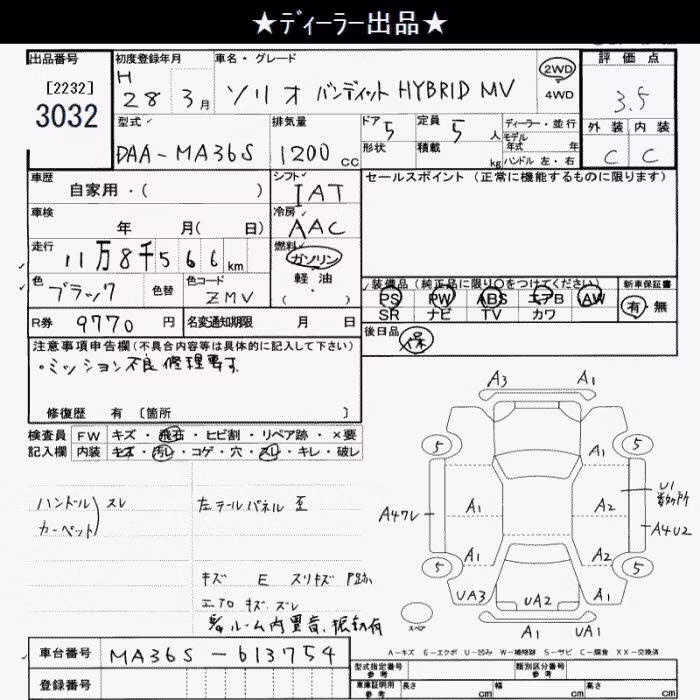 ★ディーラー出品★
出品番号
[2232]
3032
初度登録年月
H 28年 3月
車名・グレード
ソリオ バンディット HYBRID MV
2WD
4WD
評価点
3.5
外装 内装
C C
型式
DAA-MA36S
排気量
1200 cc
ドア 5
形状
定員 5 人
積載 kg
ディーラー・並行
モデル年式 年
ハンドル 左・右
車歴
自家用・( )
シフト
IAT
セールスポイント (正常に機能するものに限ります)
車検
年 月( 日)
冷房
AAC
走行
11万8千566km
燃料
ガソリン
軽油
( )
色
ブラック
色替
色コード
ZMV
装備品 (純正品に限り○をつけてください)
PS PW ABS エアB AW
SR ナビ TV カワ
新車保証書
有・無
R券 9770 円
名変通知期限 月 日
後日品
保
注意事項申告欄(不具合内容等は具体的に記入して下さい)
・ミッション不良修理要す
修復歴 有 〔箇所 〕
検査員 FW キズ・飛石・ヒビ割・リペア跡・×要
記入欄 内装 キズ・汚レ・コゲ・穴・スレ・キレ・破レ
ハンドル
カーペット) スレ
左テールパネル 歪
キズ E スリキズ P跡
エアロ キズ、スレ
ルーム内異音、振動有
A3 A1
5 5
A1
U1
数ヶ所
A47レ A1 A2
A4U2
A1 A2
5 5
UA3 UA2 A1
スペア
A1 UA1
A－キズ E－エクボ U－凹み W－補修跡 S－サビ C－腐食 XX－交換済
車台番号 MA36S-613754
登録番号
型式指定番号
参考
類別区分番号
参考
車庫証明用
参考
長さ cm 幅 cm 高さ cm